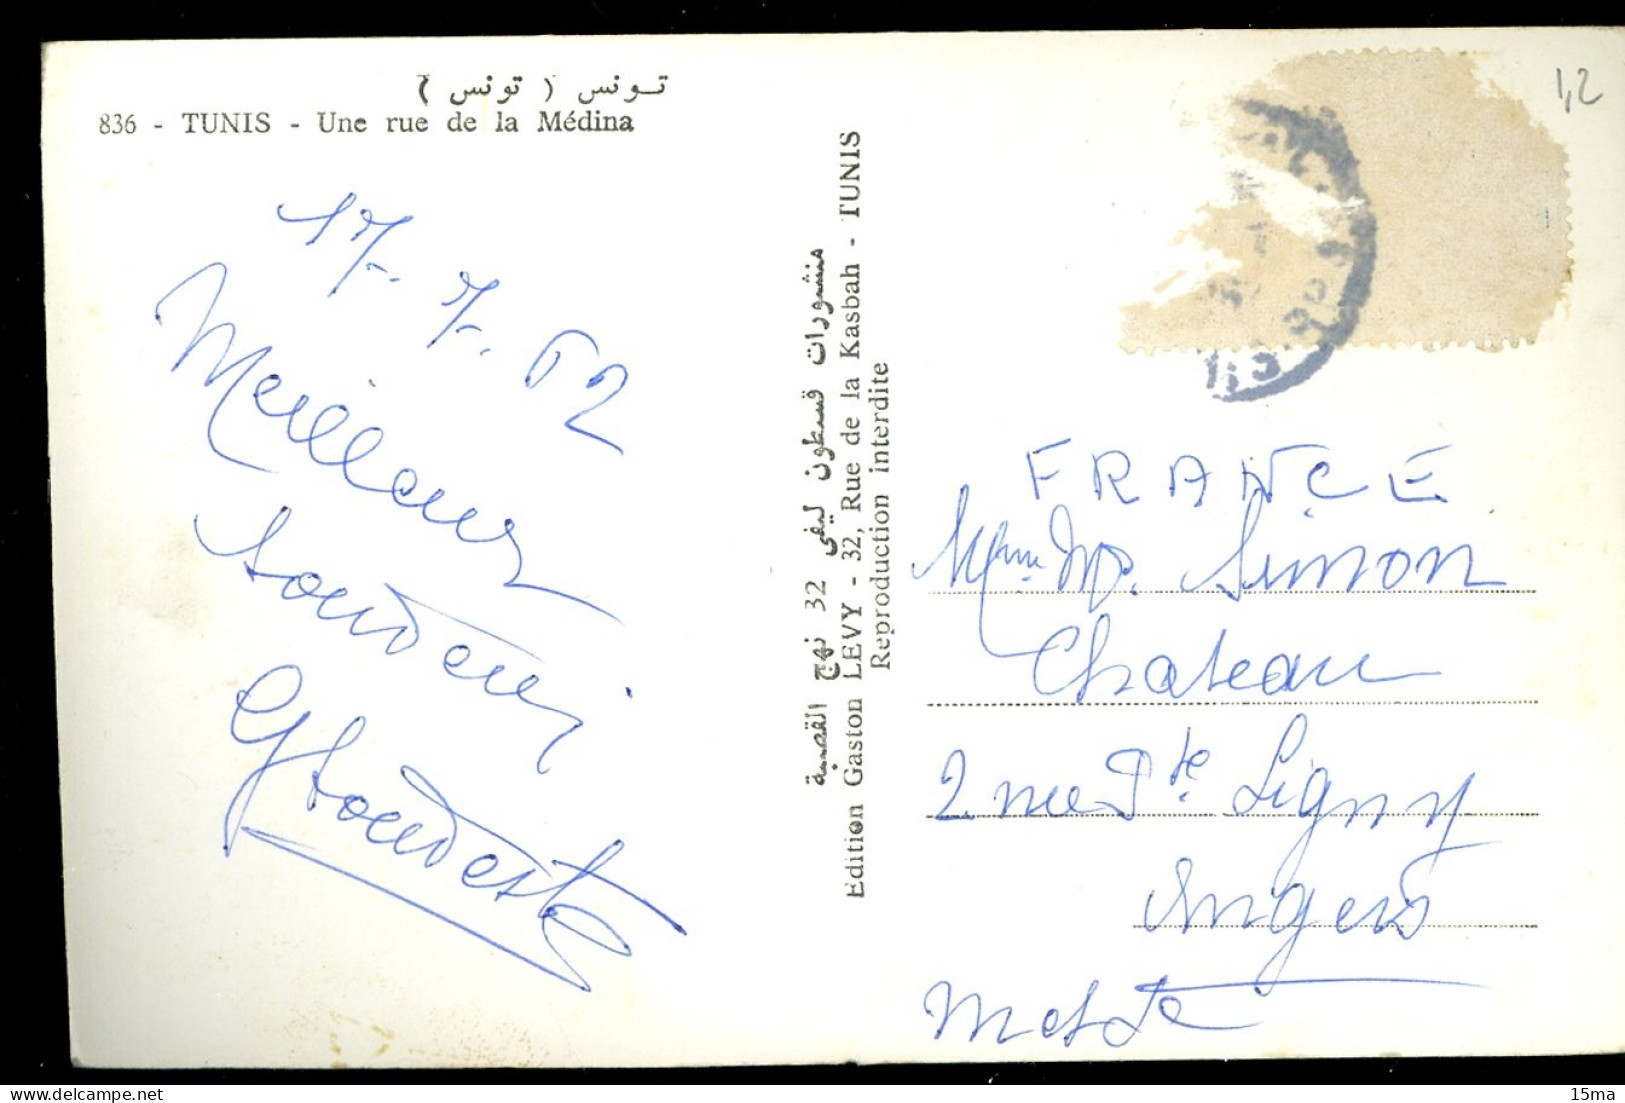 تـونس ( تونس )
836 - TUNIS - Une rue de la Médina
17. 7. 62
Meilleur
Souvenir
منشورات قسطون ليفى 32 نهج القصبة
Edition Gaston LEVY - 32, Rue de la Kasbah - TUNIS
Reproduction interdite
1,2
FRANCE
Simon
Chateau
2 rue Pte Ligny
Angers
15ma